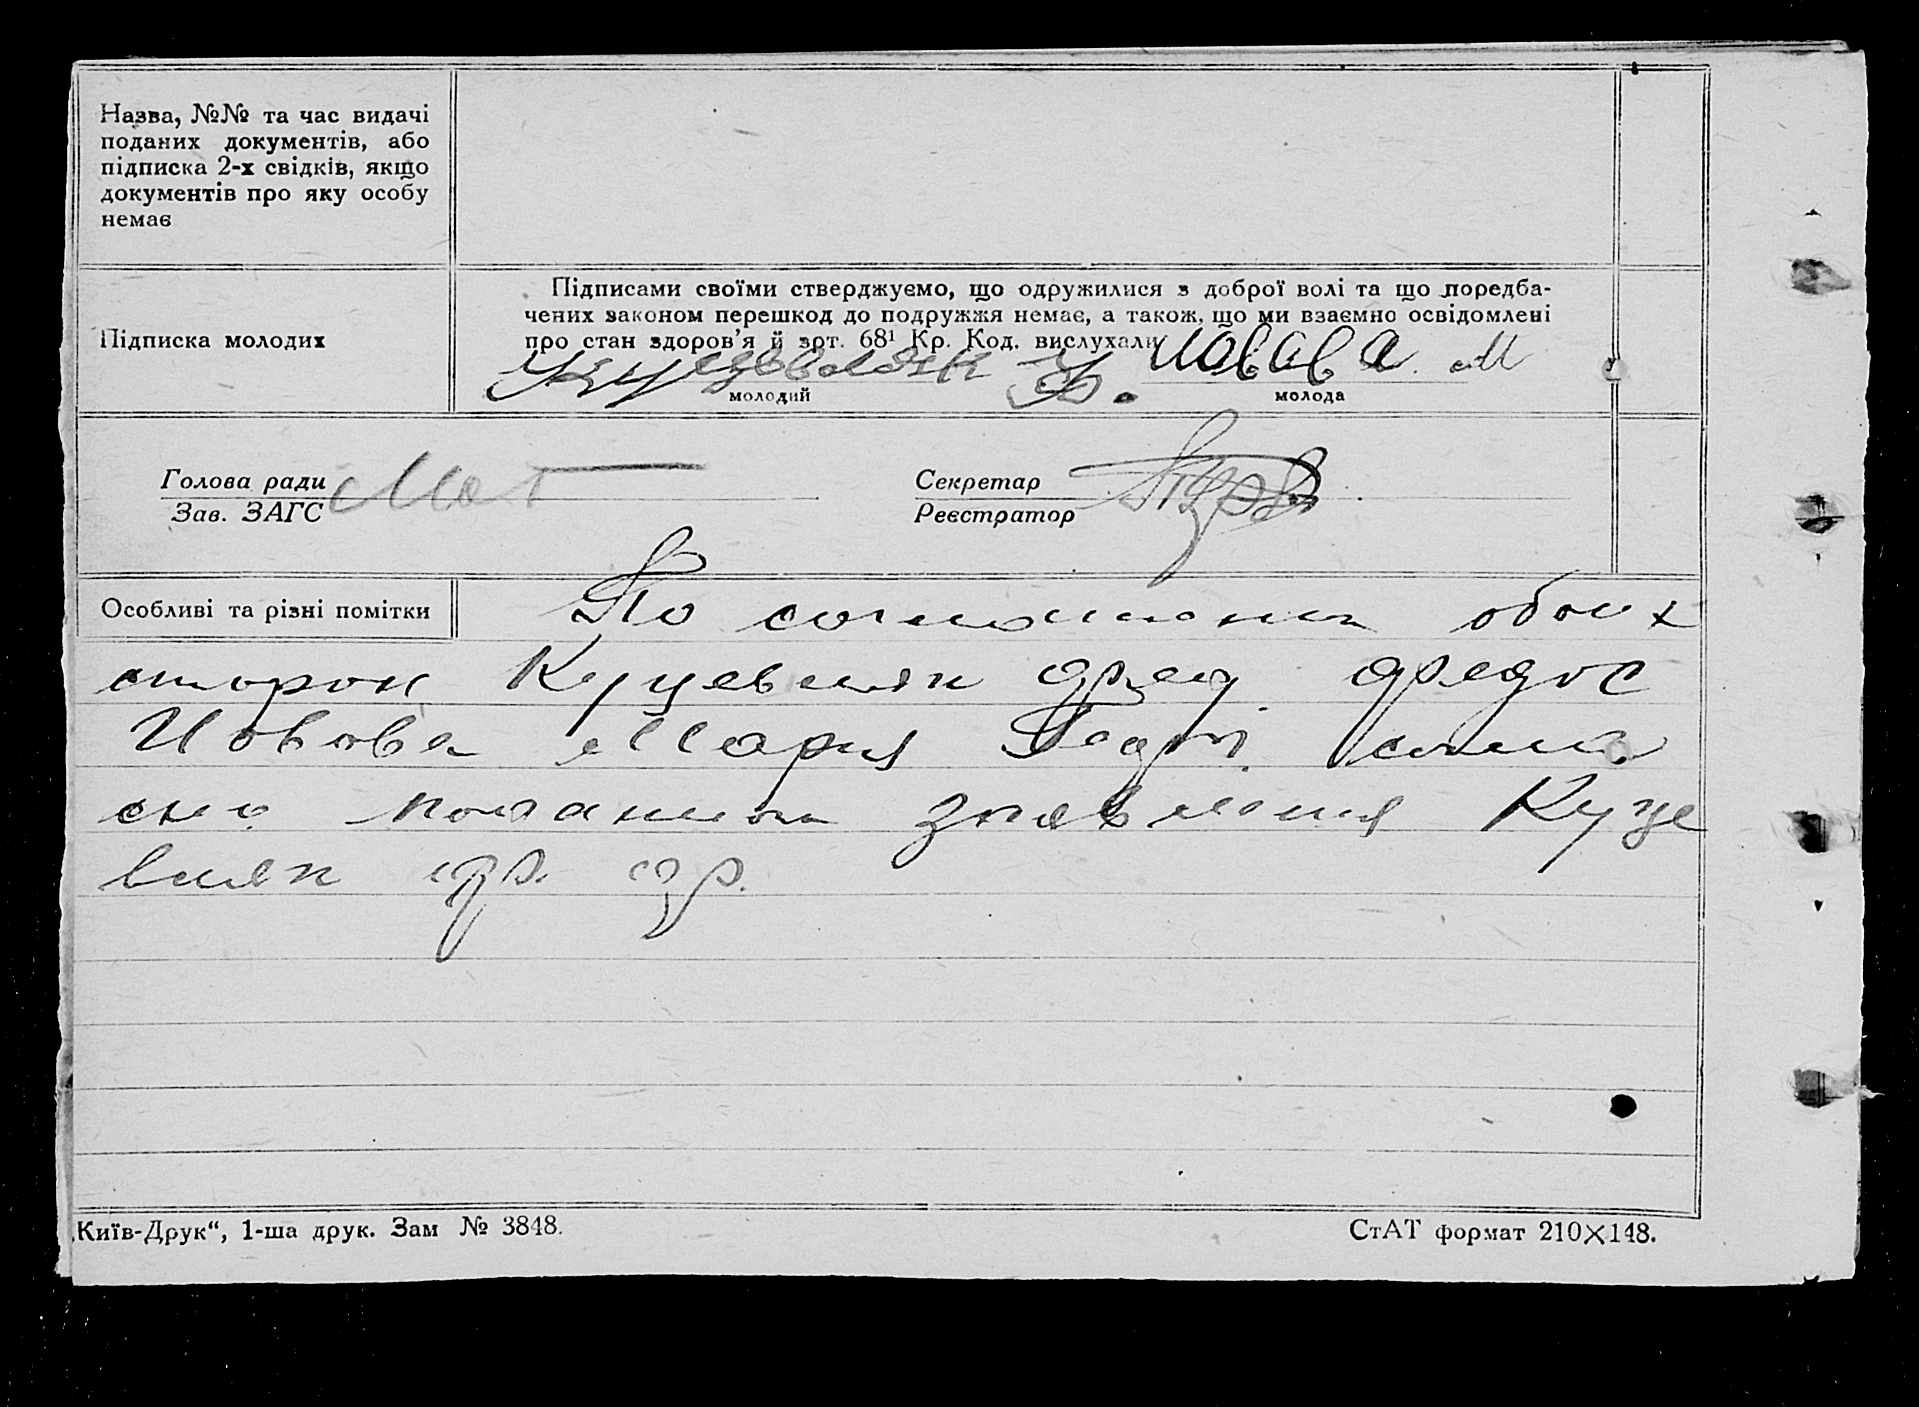 Назва, №№ та час видачі
поданих документів, або
підписка 2-х свідків, якщо
документів про яку особу
немає
Підписка молодих
Підписами своїми стверджуємо, що одружилися з доброї волі та що поредба-
чених законом перешкод до подружжя немає, а також, що ми взаємно освідомлені
про стан здоров'я й зрт. 68¹ Кр. Код. вислухали
Иовова М
молодий
молода
Голова ради
Зав. ЗАГС
Секретар
Реєстратор
Особливі та різні помітки
По обоих
сторон Куцевляк
Иовова Мария
заявления Куце
вляк
„Київ-Друк“, 1-ша друк. Зам № 3848.
СтАТ формат 210×148.